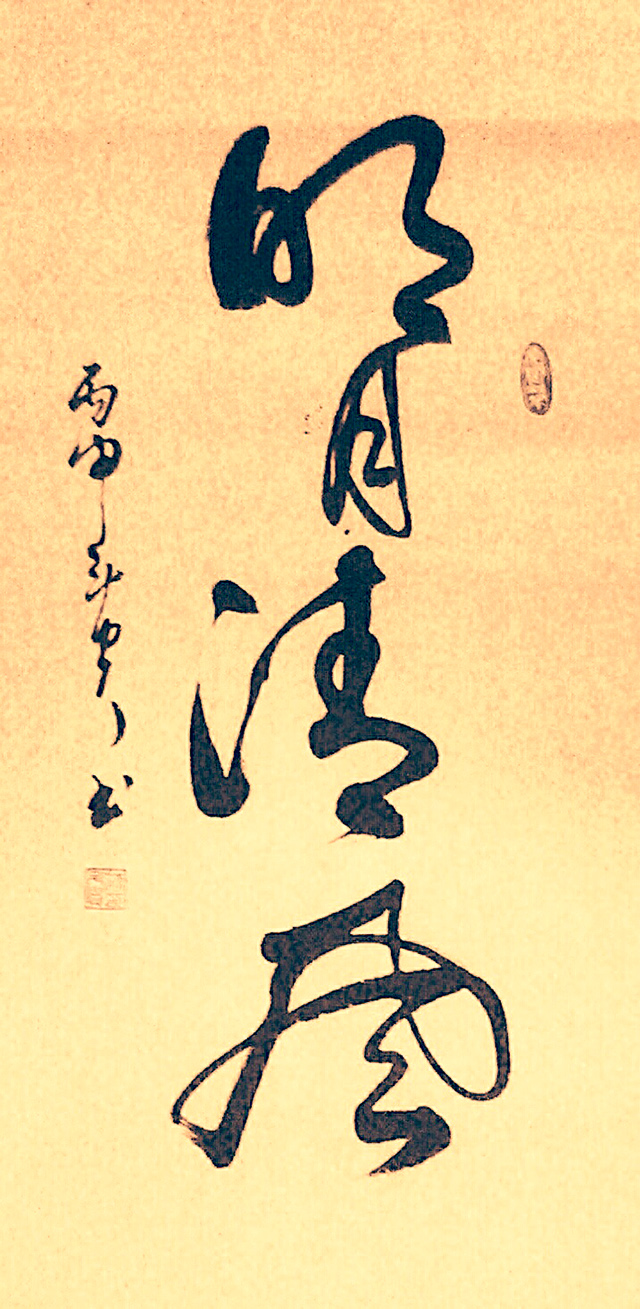 明月清風
丙申 書